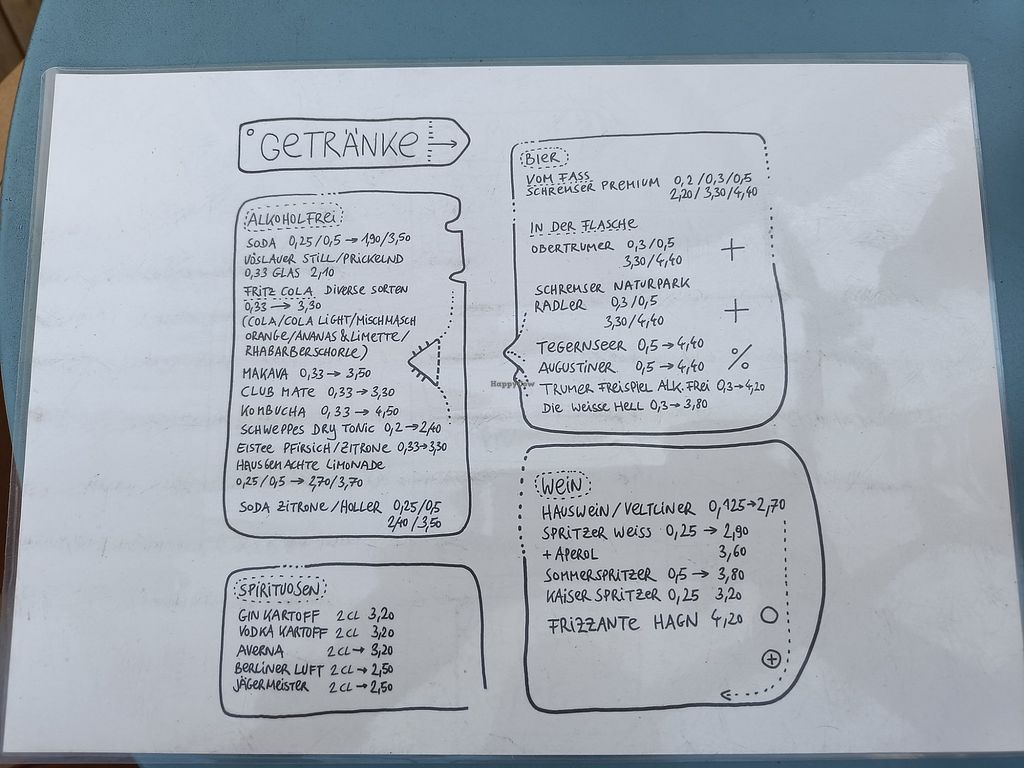 GETRÄNKE
ALKOHOLFREI
SODA 0,25/0,5 → 1,90/3,50
VÖSLAUER STILL/PRICKELND
0,33 GLAS 2,10
FRITZ COLA DIVERSE SORTEN
0,33 → 3,30
(COLA/COLA LIGHT/MISCHMASCH
ORANGE/ANANAS & LIMETTE/
RHABARBERSCHORLE)
MAKAVA 0,33 → 3,50
CLUB MATE 0,33 → 3,30
KOMBUCHA 0,33 → 4,50
SCHWEPPES DRY TONIC 0,2 → 2,40
EISTEE PFIRSICH/ZITRONE 0,33 → 3,30
HAUSGEMACHTE LIMONADE
0,25/0,5 → 2,70/3,70
SODA ZITRONE/HOLLER 0,25/0,5
2,40/3,50
SPIRITUOSEN
GIN KARTOFF 2 CL 3,20
VODKA KARTOFF 2 CL 3,20
AVERNA 2 CL → 3,20
BERLINER LUFT 2 CL → 2,50
JÄGERMEISTER 2 CL → 2,50
BIER
VOM FASS
SCHREMSER PREMIUM 0,2/0,3/0,5
2,20/3,30/4,40
IN DER FLASCHE
OBERTRUMER 0,3/0,5
3,30/4,40
SCHREMSER NATURPARK
RADLER 0,3/0,5
3,30/4,40
TEGERNSEER 0,5 → 4,40
AUGUSTINER 0,5 → 4,40
%
TRUMER FREISPIEL ALK. FREI 0,3 → 4,20
DIE WEISSE HELL 0,3 → 3,80
WEIN
HAUSWEIN/VELTLINER 0,125 → 2,70
SPRITZER WEISS 0,25 → 2,90
+ APEROL 3,60
SOMMERSPRITZER 0,5 → 3,80
KAISER SPRITZER 0,25 3,20
FRIZZANTE HAGN 4,20
HappyCow